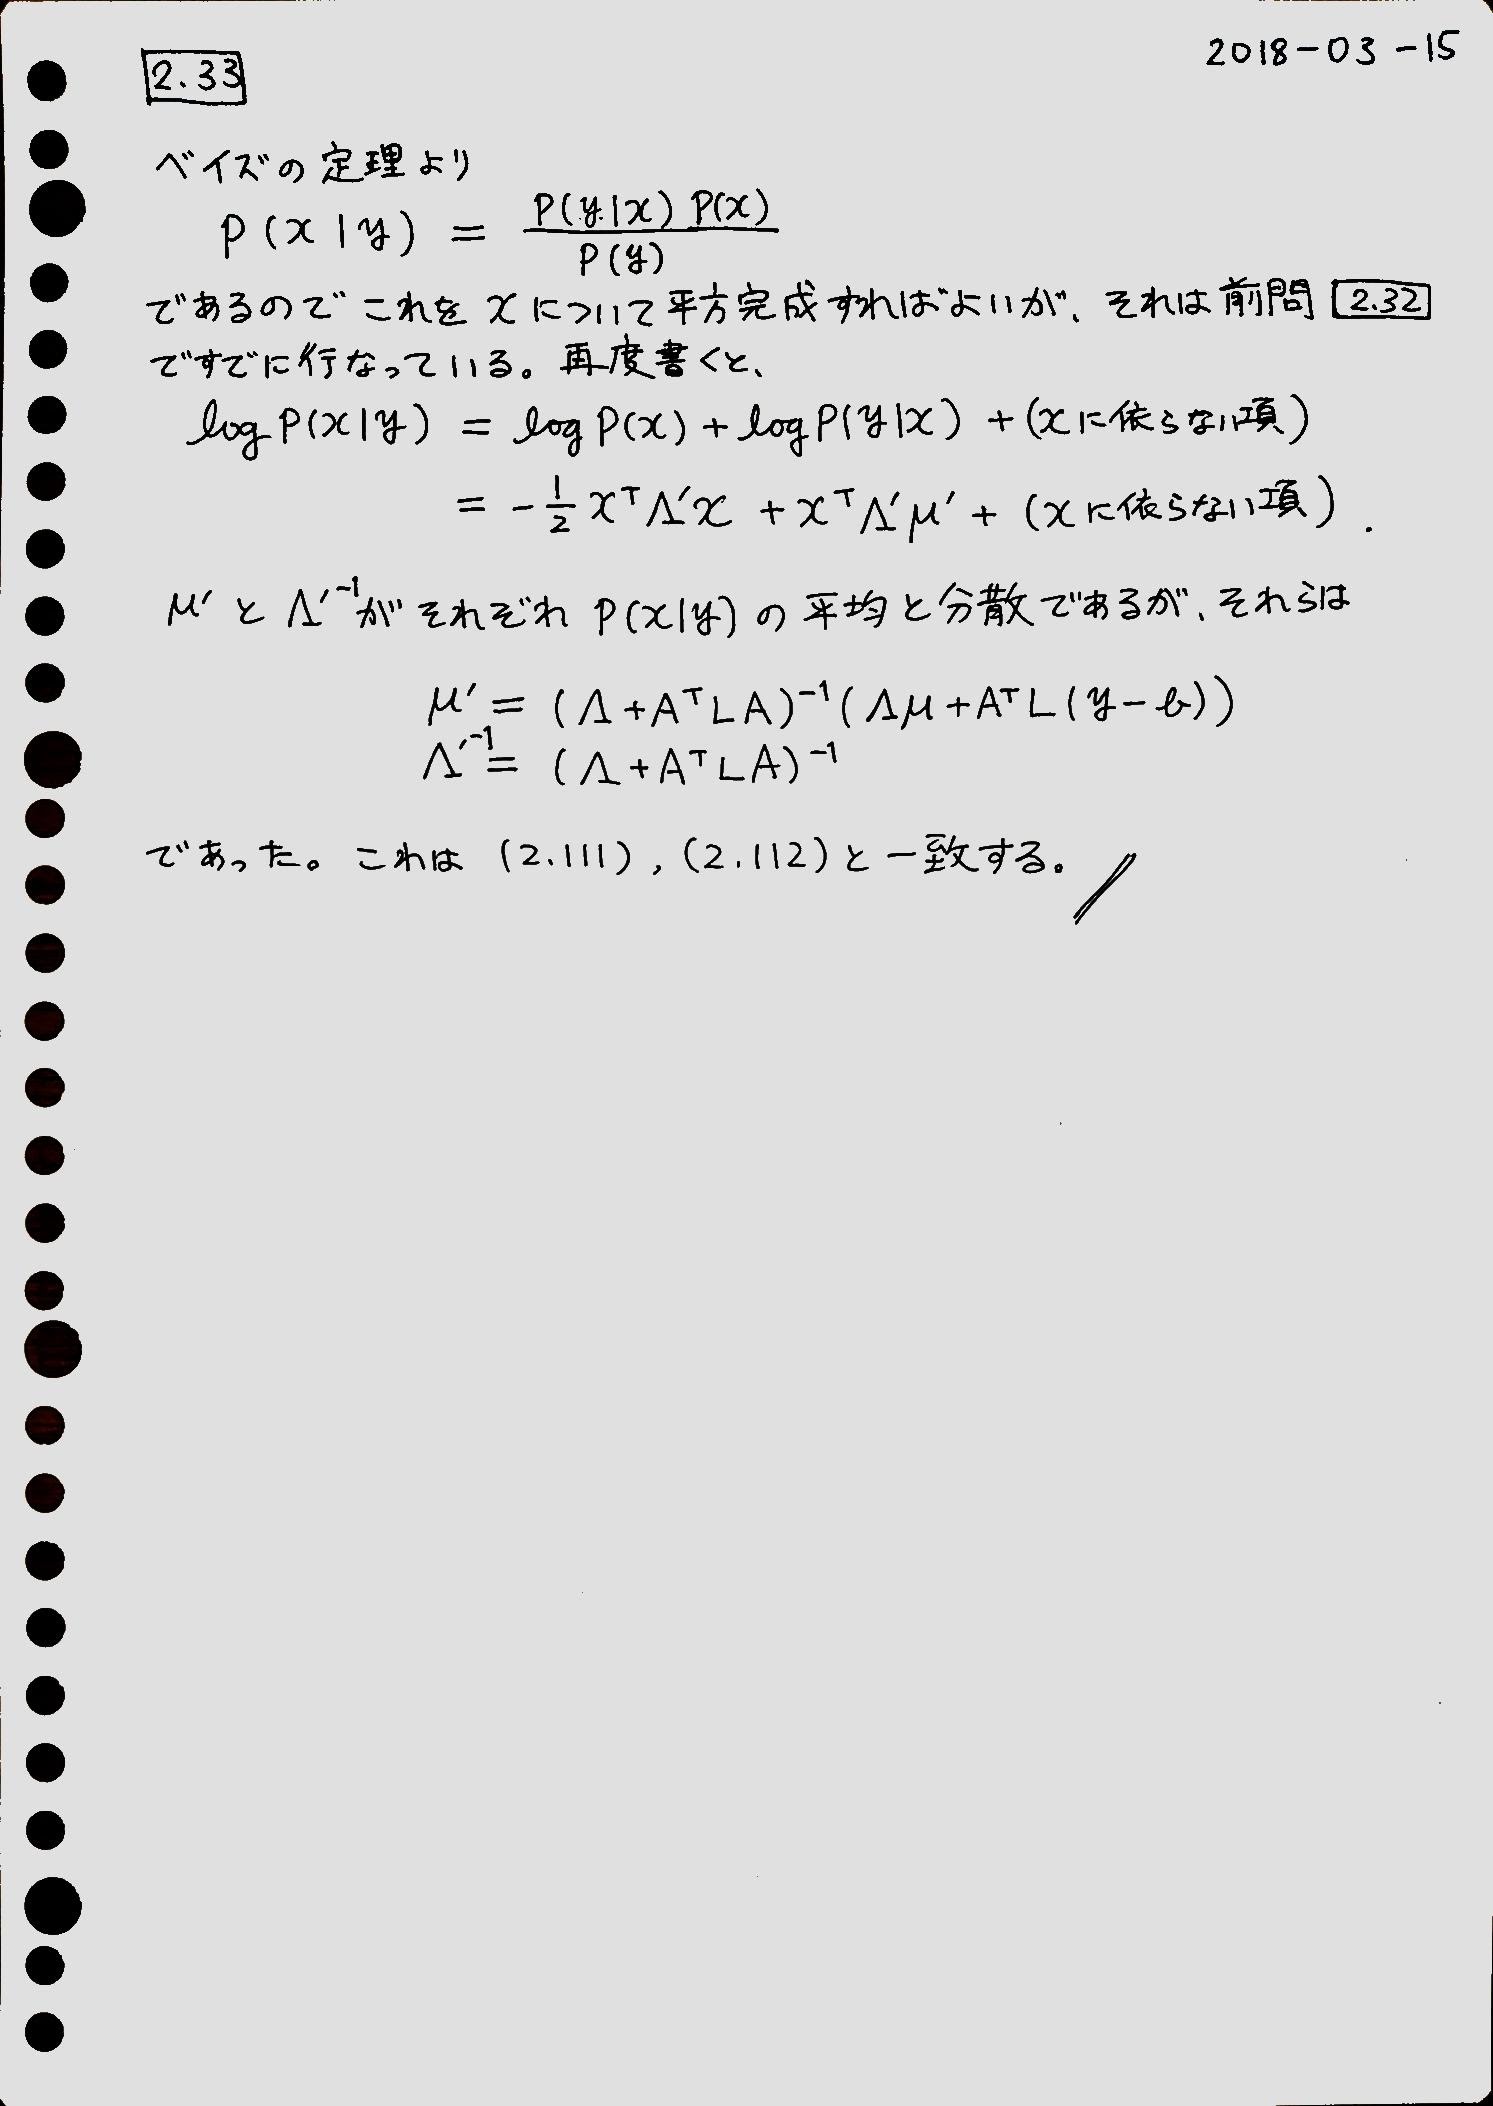 2018-03-15
2.33
ベイズの定理より
P(x|y) = P(y|x) P(x) / P(y)
であるので これを x について平方完成すればよいが、それは前問 2.32
ですでに行なっている。再度書くと、
log P(x|y) = log P(x) + log P(y|x) + (xに依らない項)
= -1/2 xᵀΛ'x + xᵀΛ'μ' + (xに依らない項).
μ' と Λ'⁻¹ が それぞれ P(x|y) の 平均と分散であるが、それらは
μ' = (Λ+AᵀLA)⁻¹(Λμ+AᵀL(y-b))
Λ'⁻¹ = (Λ+AᵀLA)⁻¹
であった。これは (2.111), (2.112)と一致する。